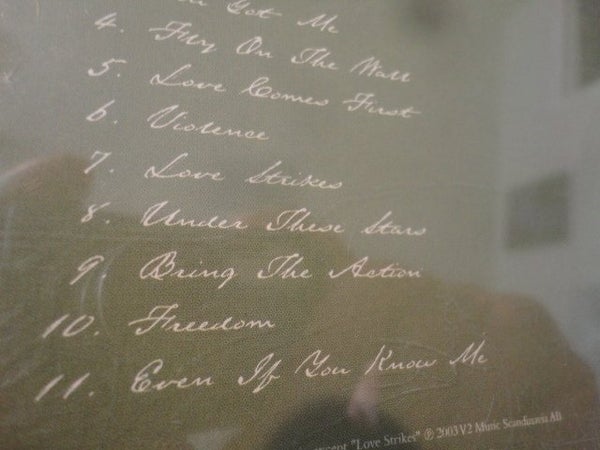 Got Me
4. Fly On The Wall
5. Love Comes First
6. Violence
7. Love Strikes
8. Under These Stars
9. Bring The Action
10. Freedom
11. Even If You Know Me
"Love Strikes" ℗ 2003 V2 Music Scandinavia All